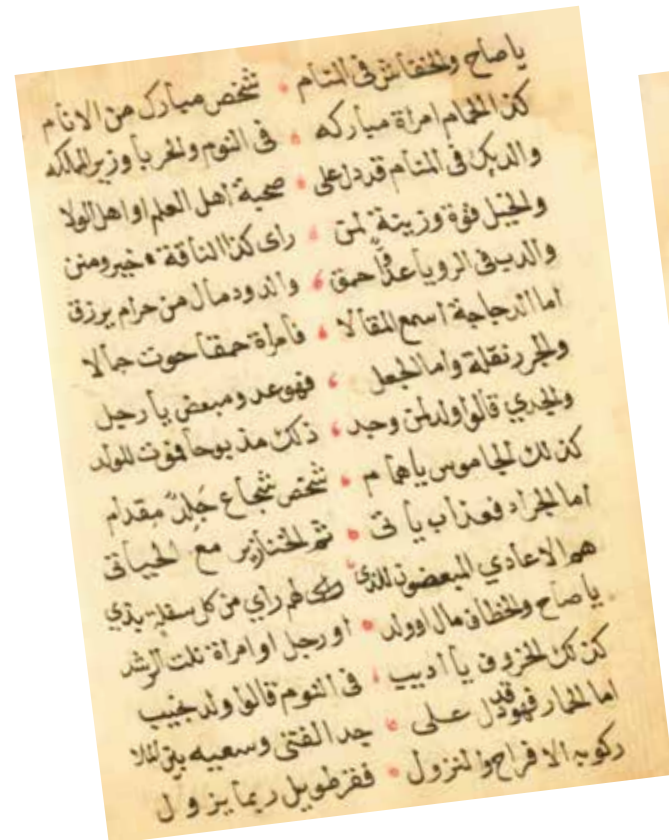 ياصاح والخفاش فى المنام ، شخص مبارك من الانام
كذا الحمام امراة مباركه ، فى النوم والحربا وزير المالكه
والديك فى المنام قد دل على ، صحبة اهل العلم او اهل الولا
والخيل قوة وزينة لمن ، راى كذا الناقة خير ومنن
والدب فى الرويا عدو احمق ، والدود مال من حرام يرزق
اما الدجاجة اسمع المقالا ، فامراة حمقا حوت جمالا
والجرر نقلة واما الجعل ، فهو عدو مبعض يا رجل
والجدي قالوا ولد لمن وجد ، ذلك مذبوحا فموت للولد
كذلك الجاموس ياهمام ، شخص شجاع جلد مقدام
اما الجراد فعذاب ياتى ، ثم الخنازير مع الحياتى
هم الاعادي المبعضون للذى ، لهم راي من كل سفلة بذي
ياصاح والخطاف مال اوولد ، او رجل او امراة نلت الرشد
كذلك الخروف يا اديب ، فى النوم قالوا ولد نجيب
اما الحمار فهو قد دل على ، جد الفتى وسعيه بين الملا
ركوبه الافراح والنزول ، فقر طويل ربما يزول